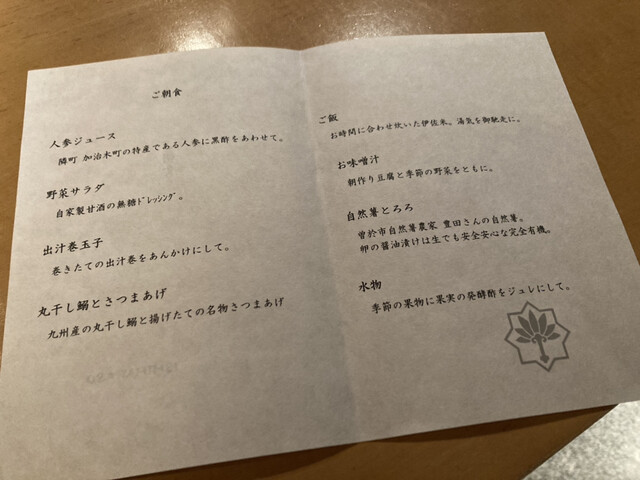 ご朝食
人参ジュース
隣町 加治木町の特産である人参に黒酢をあわせて。
野菜サラダ
自家製甘酒の無糖ﾄﾞﾚｯｼﾝｸﾞ。
出汁巻玉子
巻きたての出汁巻をあんかけにして。
丸干し鰯とさつまあげ
九州産の丸干し鰯と揚げたての名物さつまあげ
ご飯
お時間に合わせ炊いた伊佐米。湯気を御馳走に。
お味噌汁
朝作り豆腐と季節の野菜をともに。
自然薯とろろ
曽於市自然薯農家 豊田さんの自然薯。
卵の醤油漬けは生でも安全安心な完全有機。
水物
季節の果物に果実の発酵酢をジュレにして。